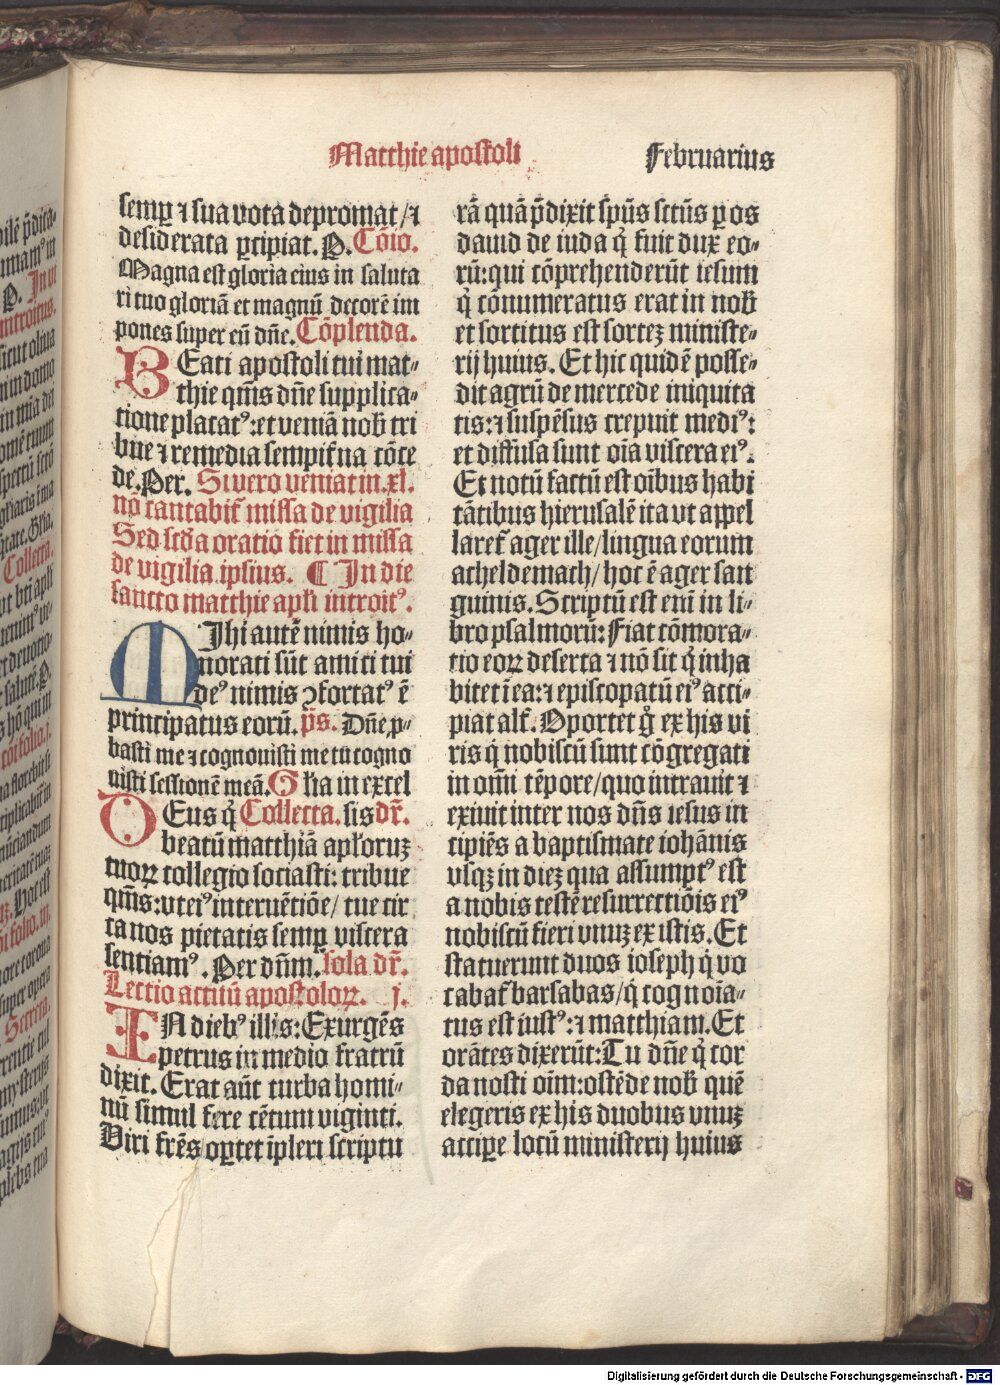 Matthie apostoli
Februarius
semꝑ ⁊ sua vota depromat/⁊
desiderata ꝑcipiat. P. Cōio.
Magna est gloria eius in saluta
ri tuo gloriā et magnū decorē im
pones super eū dn̄e. Cōplenda.
BEati apostoli tui mat-
thie qm̄s dn̄e supplica-
tione placatꝰ:et veniā nob̄ tri
bue ⁊ remedia sempit̄na cōce
de. Per. Si vero veniat in .xl.
nō cantabit̄ missa de vigilia
Sed scd̄a oratio fiet in missa
de vigilia ipsius. ¶ In die
sancto matthie apl̄i introitꝰ.
MIhi autē nimis ho-
norati sūt amici tui
deꝰ nimis ꝯfortatꝰ ē
principatus eorū. p̄s. Dn̄e ꝓ-
basti me ⁊ cognouisti me tu cogno
uisti sessionē meā. Glīa in excel
DEus q̄ Collecta. sis dr̄.
beatū matthiā apl̄oruꝫ
tuoꝝ collegio sociasti: tribue
qm̄s:vt eiꝰ interuētiōe/ tue cir
ca nos pietatis semꝑ viscera
sentiamꝰ. Per dn̄m. sola dr̄.
Lectio actuū apostoloꝝ. j.
IN diebꝰ illis: Exurgēs
petrus in medio fratrū
dixit. Erat aūt turba homi-
nū simul fere cētum viginti.
Viri fr̄es oꝑtet īpleri scriptu
rā quā p̄dixit sp̄ūs sctūs ꝑ os
dauid de iuda q̄ fuit dux eo-
rū:qui cōprehenderūt iesum
q̄ cōnumeratus erat in nob̄
et sortitus est sorteꝫ ministe-
rij huius. Et hic quidē posse-
dit agrū de mercede iniquita
tis:⁊ suspēsus crepuit mediꝰ:
et diffusa sunt oīa viscera eiꝰ.
Et notū factū est oībus habi
tātibus hierusalē ita vt appel
laret̄ ager ille/lingua eorum
acheldemach/ hoc ē ager san
guinis. Scriptū est enī in li-
bro psalmorū: Fiat cōmora-
tio eoꝝ deserta ⁊ nō sit q̄ inha
bitet ī ea:⁊ episcopatū eiꝰ acci-
piat alt̄. Oportet g̊ ex his vi
ris q̄ nobiscū sunt cōgregati
in om̄i tēpore/quo intrauit ⁊
exiuit inter nos dn̄s iesus in
cipiēs a baptismate iohānis
vsqꝫ in dieꝫ qua assumptꝰ est
a nobis testē resurrectiōis eiꝰ
nobiscū fieri vnuꝫ ex istis. Et
statuerunt duos ioseph q̄ vo
cabat̄ barsabas/q̄ cognoīa-
tus est iustꝰ:⁊ matthiam. Et
orātes dixerūt: Tu dn̄e q̄ cor
da nosti oīm:ostēde nob̄ quē
elegeris ex his duobus vnuꝫ
acciꝑe locū ministerij huius
Digitalisierung gefördert durch die Deutsche Forschungsgemeinschaft - DFG